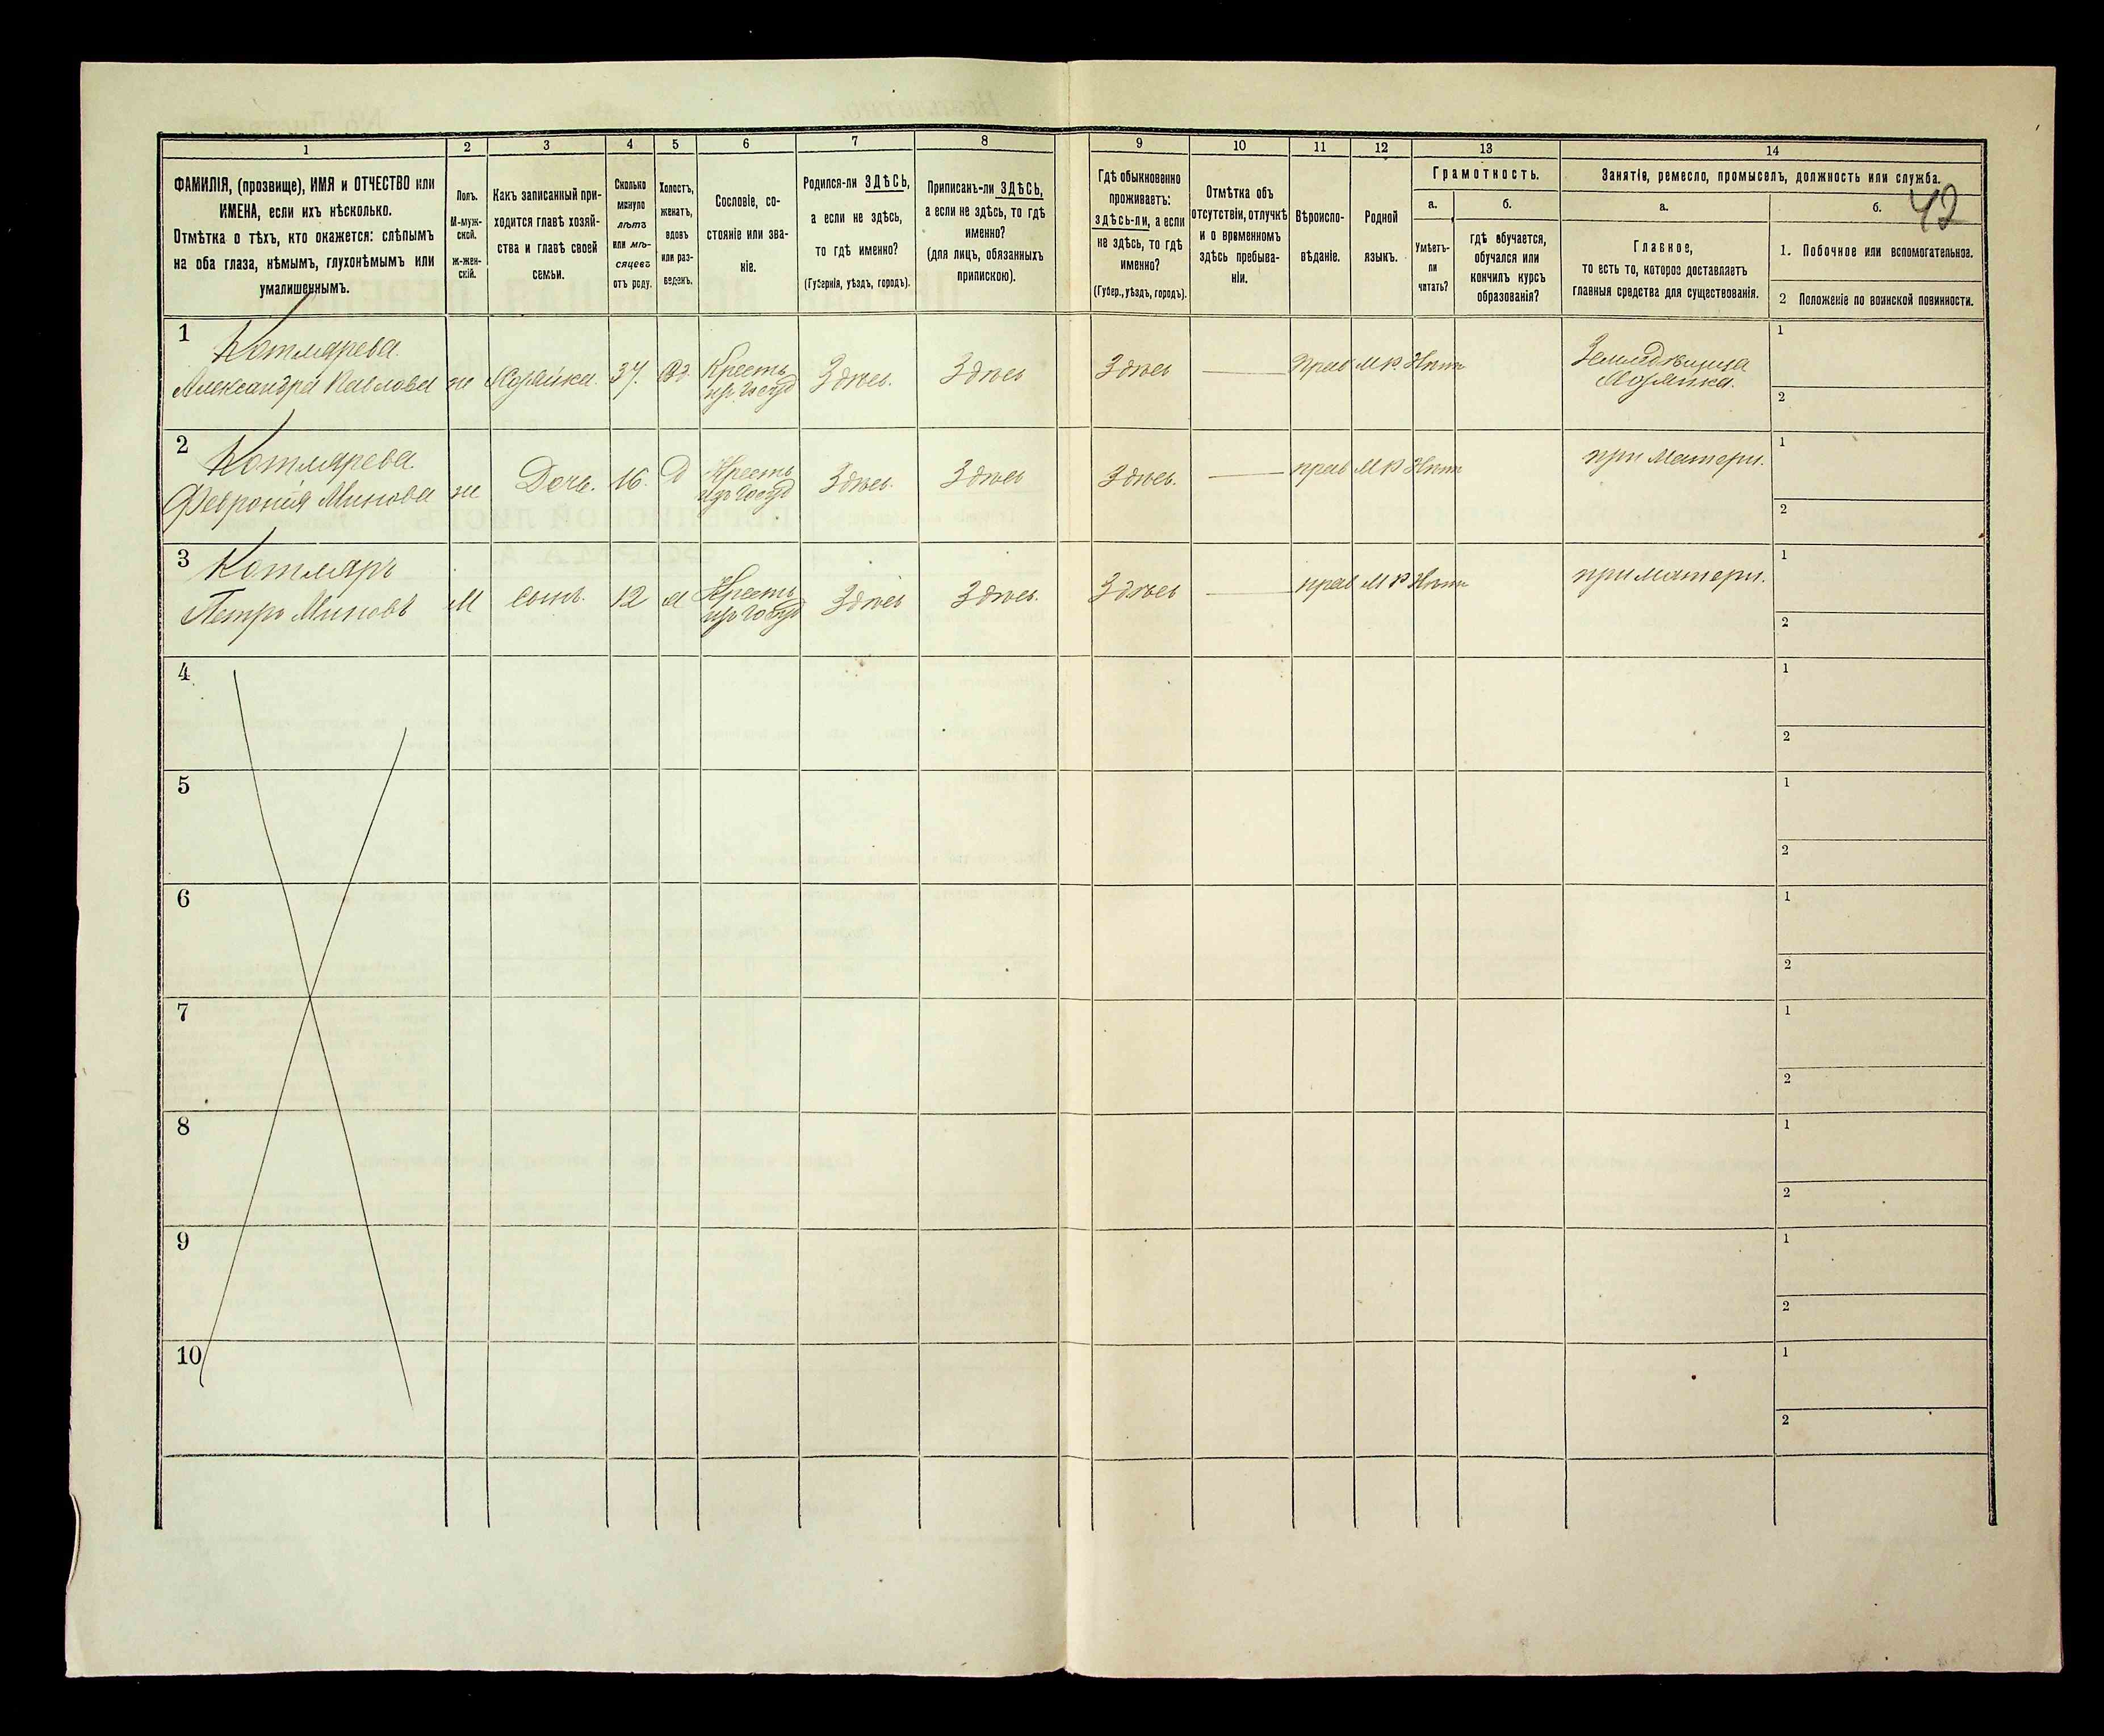 1 2 3 4 5 6 7 8 9 10 11 12 13 14
ФАМИЛІЯ, (прозвище), ИМЯ и ОТЧЕСТВО или
ИМЕНА, если ихъ нѣсколько.
Отмѣтка о тѣхъ, кто окажется: слѣпымъ
на оба глаза, нѣмымъ, глухонѣмымъ или
умалишеннымъ.
Полъ.
М-муж-
ской.
ж-жен-
скій.
Какъ записанный при-
ходится главѣ хозяй-
ства и главѣ своей
семьи.
Сколько
минуло
лѣтъ
или мѣ-
сяцевъ
отъ роду.
Холостъ,
женатъ,
вдовъ
или раз-
веденъ.
Сословіе, со-
стояніе или зва-
ніе.
Родился-ли ЗДѢСЬ,
а если не здѣсь,
то гдѣ именно?
(Губернія, уѣздъ, городъ).
Приписанъ-ли ЗДѢСЬ,
а если не здѣсь, то гдѣ
именно?
(для лицъ, обязанныхъ
припискою).
Гдѣ обыкновенно
проживаетъ:
здѣсь-ли, а если
не здѣсь, то гдѣ
именно?
(Губер., уѣздъ, городъ).
Отмѣтка объ
отсутствіи, отлучкѣ
и о временномъ
здѣсь пребыва-
ніи.
Вѣроиспо-
вѣданіе.
Родной
языкъ.
Грамотность.
а.
Умѣетъ-
ли
читать?
б.
гдѣ обучается,
обучался или
кончилъ курсъ
образованія?
Занятіе, ремесло, промыселъ, должность или служба.
42
а.
Главное,
то есть то, которое доставляетъ
главныя средства для существованія.
б.
1. Побочное или вспомогательное.
2 Положеніе по воинской повинности.
1 Котлярева.
Александра Павлова ж Хозяйка. 37. Вд. Кресть
изъ госуд Здѣсь. Здѣсь Здѣсь — Прав М Р Нѣтъ Земледѣлица
Хозяйка. 1
2
2 Котлярева.
Февронія Минова ж Дочь. 16. Д Кресть
изъ госуд Здѣсь. Здѣсь Здѣсь. — прав М Р Нѣтъ при матери. 1
2
3 Котляръ
Петръ Миновъ М сынъ. 12 Кресть
изъ госуд Здѣсь Здѣсь. Здѣсь — прав М Р Нѣтъ при матери. 1
2
4 1
2
5 1
2
6 1
2
7 1
2
8 1
2
9 1
2
10 1
2